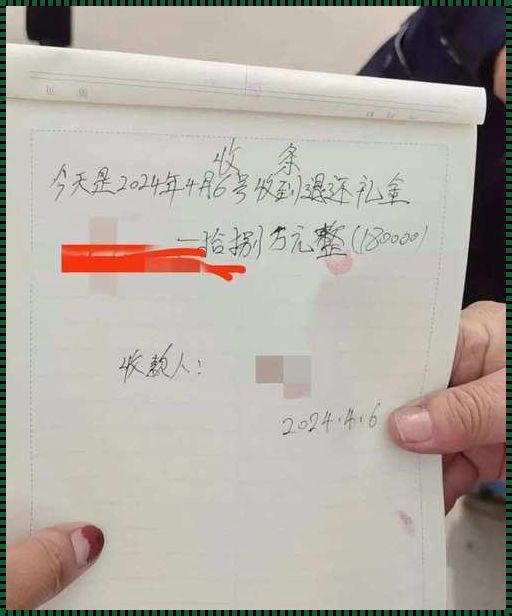 收 条
今天是2024年4月6号收到退还礼金
一拾捌万元整(180000)
收款人:
2024.4.6